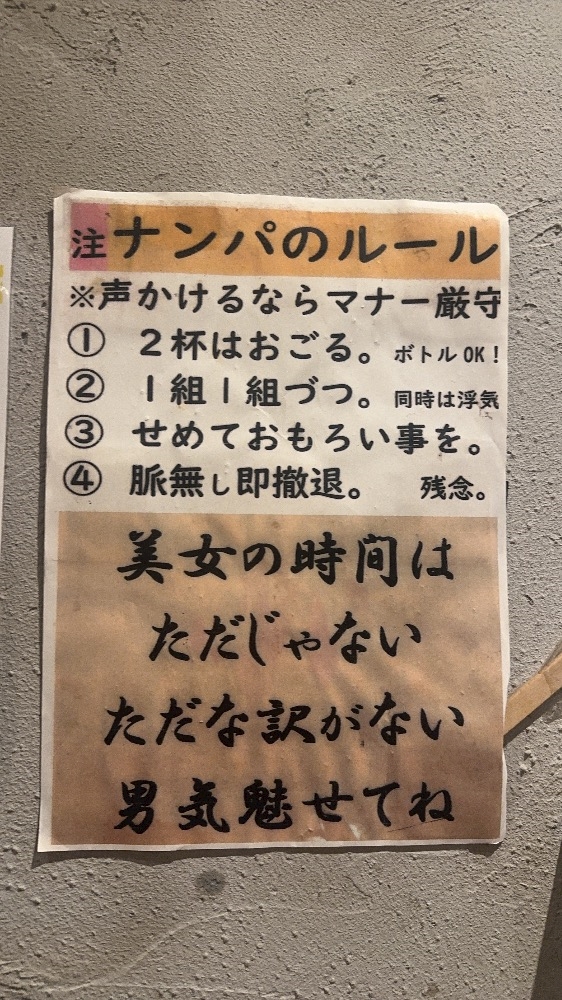 注ナンパのルール
※声かけるならマナー厳守
① 2杯はおごる。 ボトルOK!
② 1組1組づつ。 同時は浮気
③ せめておもろい事を。
④ 脈無し即撤退。 残念。
美女の時間は
ただじゃない
ただな訳がない
男気魅せてね